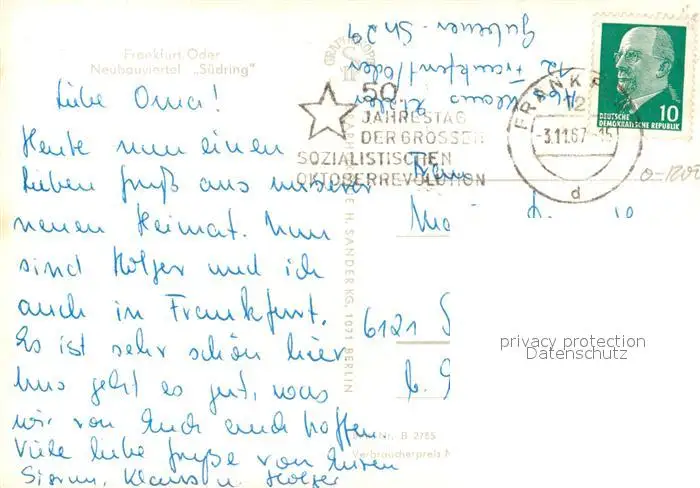 Frankfurt Oder
Neubauviertel „Südring"
Liebe Oma!
Heute nun einen
lieben Gruß aus unserer
neuen Heimat. Nun
sind Holger und ich
auch in Frankfurt.
Es ist sehr schön hier
Uns geht es gut, was
wir von Euch auch hoffen
Viele liebe Grüße von Euren
Klaus u. Holger
Abs. Klaus
12 Frankfurt/Oder
Gubener-Str 29
50
JAHRESTAG
DER GROSSEN
SOZIALISTISCHEN
OKTOBERREVOLUTION
FRANKF
12
-3.11.67.-15
d
10
DEUTSCHE
DEMOKRATISCHE REPUBLIK
H. SANDER KG, 1631 BERLIN
6121 S
b. G
Nr. B 2785
Verbraucherpreis M
privacy protection
Datenschutz